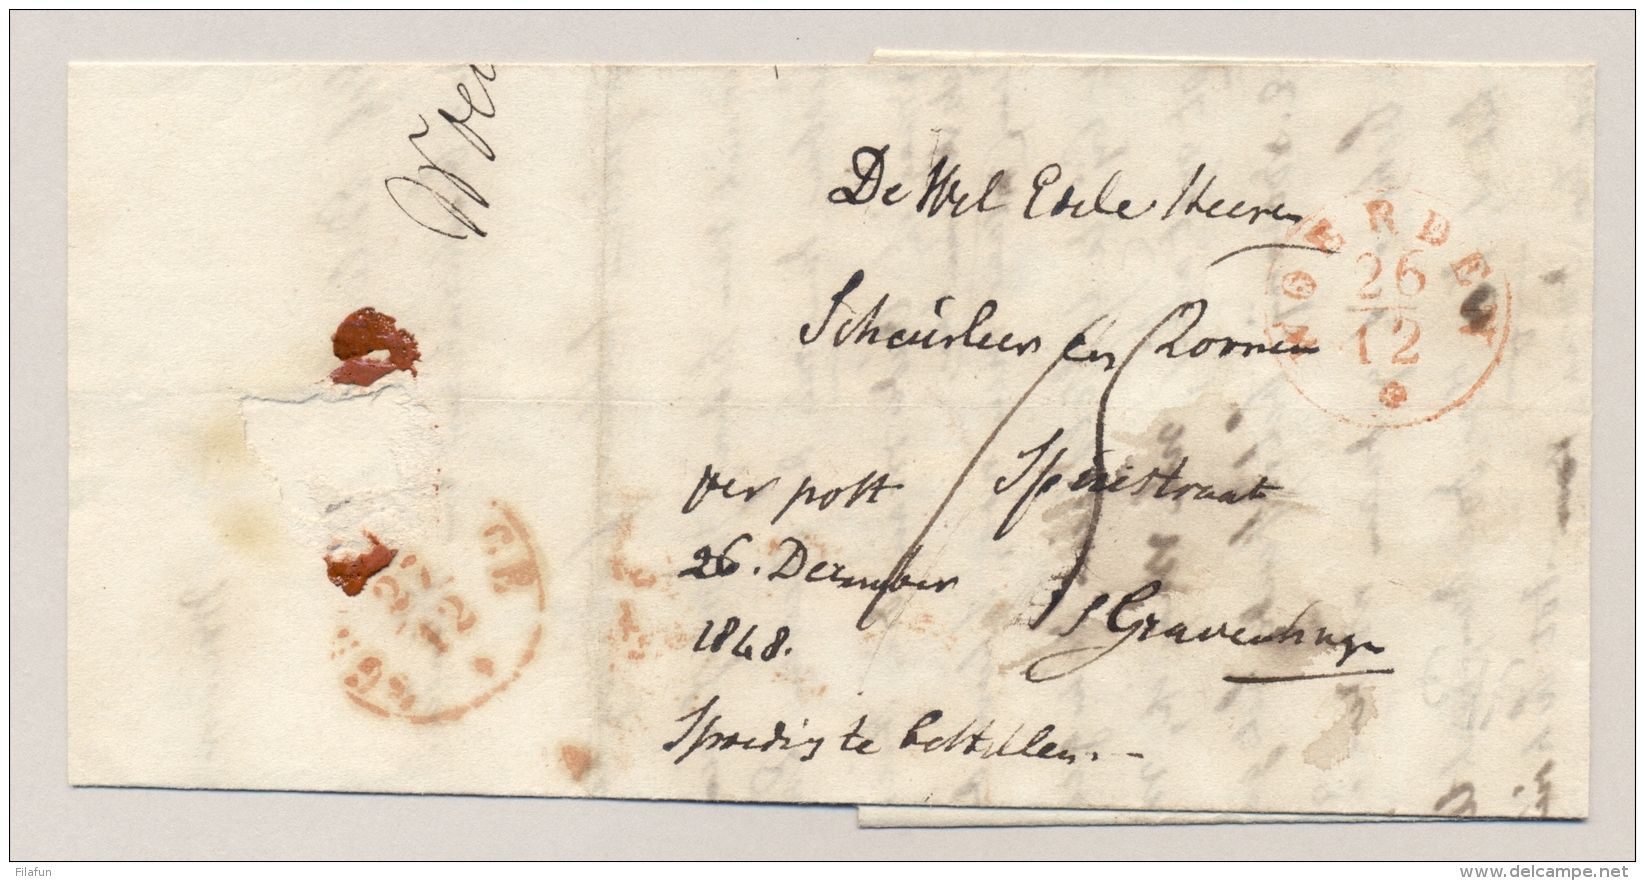 Woer
De Wel Edele Heeren
Scheurleer en Zoonen
Spuistraat
s Gravenhage
per post
26. December
1848.
Spoedig te bestellen. -
5
WOERDEN
26
12
27
12
Filafun
www.delcampe.net